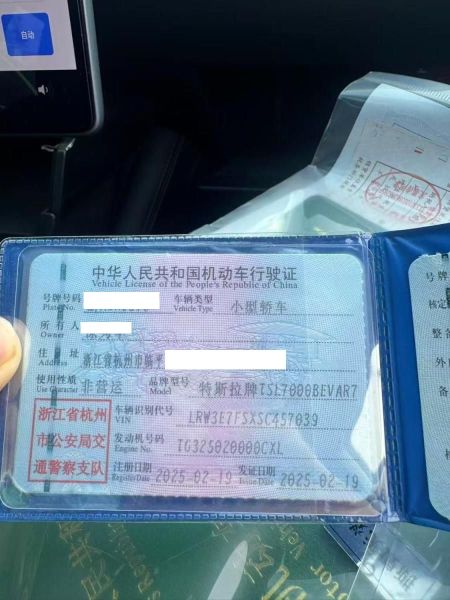 自动
中华人民共和国机动车行驶证
Vehicle License of the People's Republic of China
号牌号码
Plate No.
车辆类型 小型轿车
Vehicle Type
所有人
Owner
住 址 浙江省杭州市临平
Address
使用性质 非营运 品牌型号 特斯拉牌TSL7000BEVAR7
Use Character Model
浙江省杭州
市公安局交
通警察支队
车辆识别代号 LRW3E7FSXSC457039
VIN
发动机号码 TG325020000CXL
Engine No.
注册日期 2025-02-19 发证日期 2025-02-19
Register Date Issue Date
号牌
核定
整
外
备